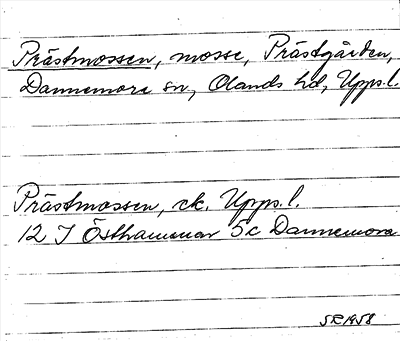 Prästmossen, mosse, Prästgården,
Dannemora sn, Olands hd, Upps.l.
Prästmossen, ek. Upps.l.
12 I Östhammar 5c Dannemora
SR 1958